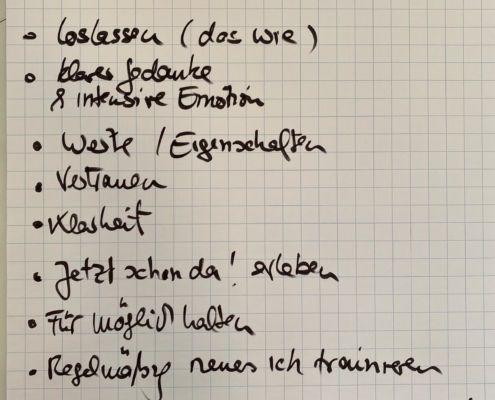 • Loslassen (das wie)
• klarer Gedanke
& intensive Emotion
• Werte / Eigenschaften
• Vertrauen
• Klarheit
• Jetzt schon da! erleben
• Für möglich halten
• Regelmäßig neues Ich trainieren